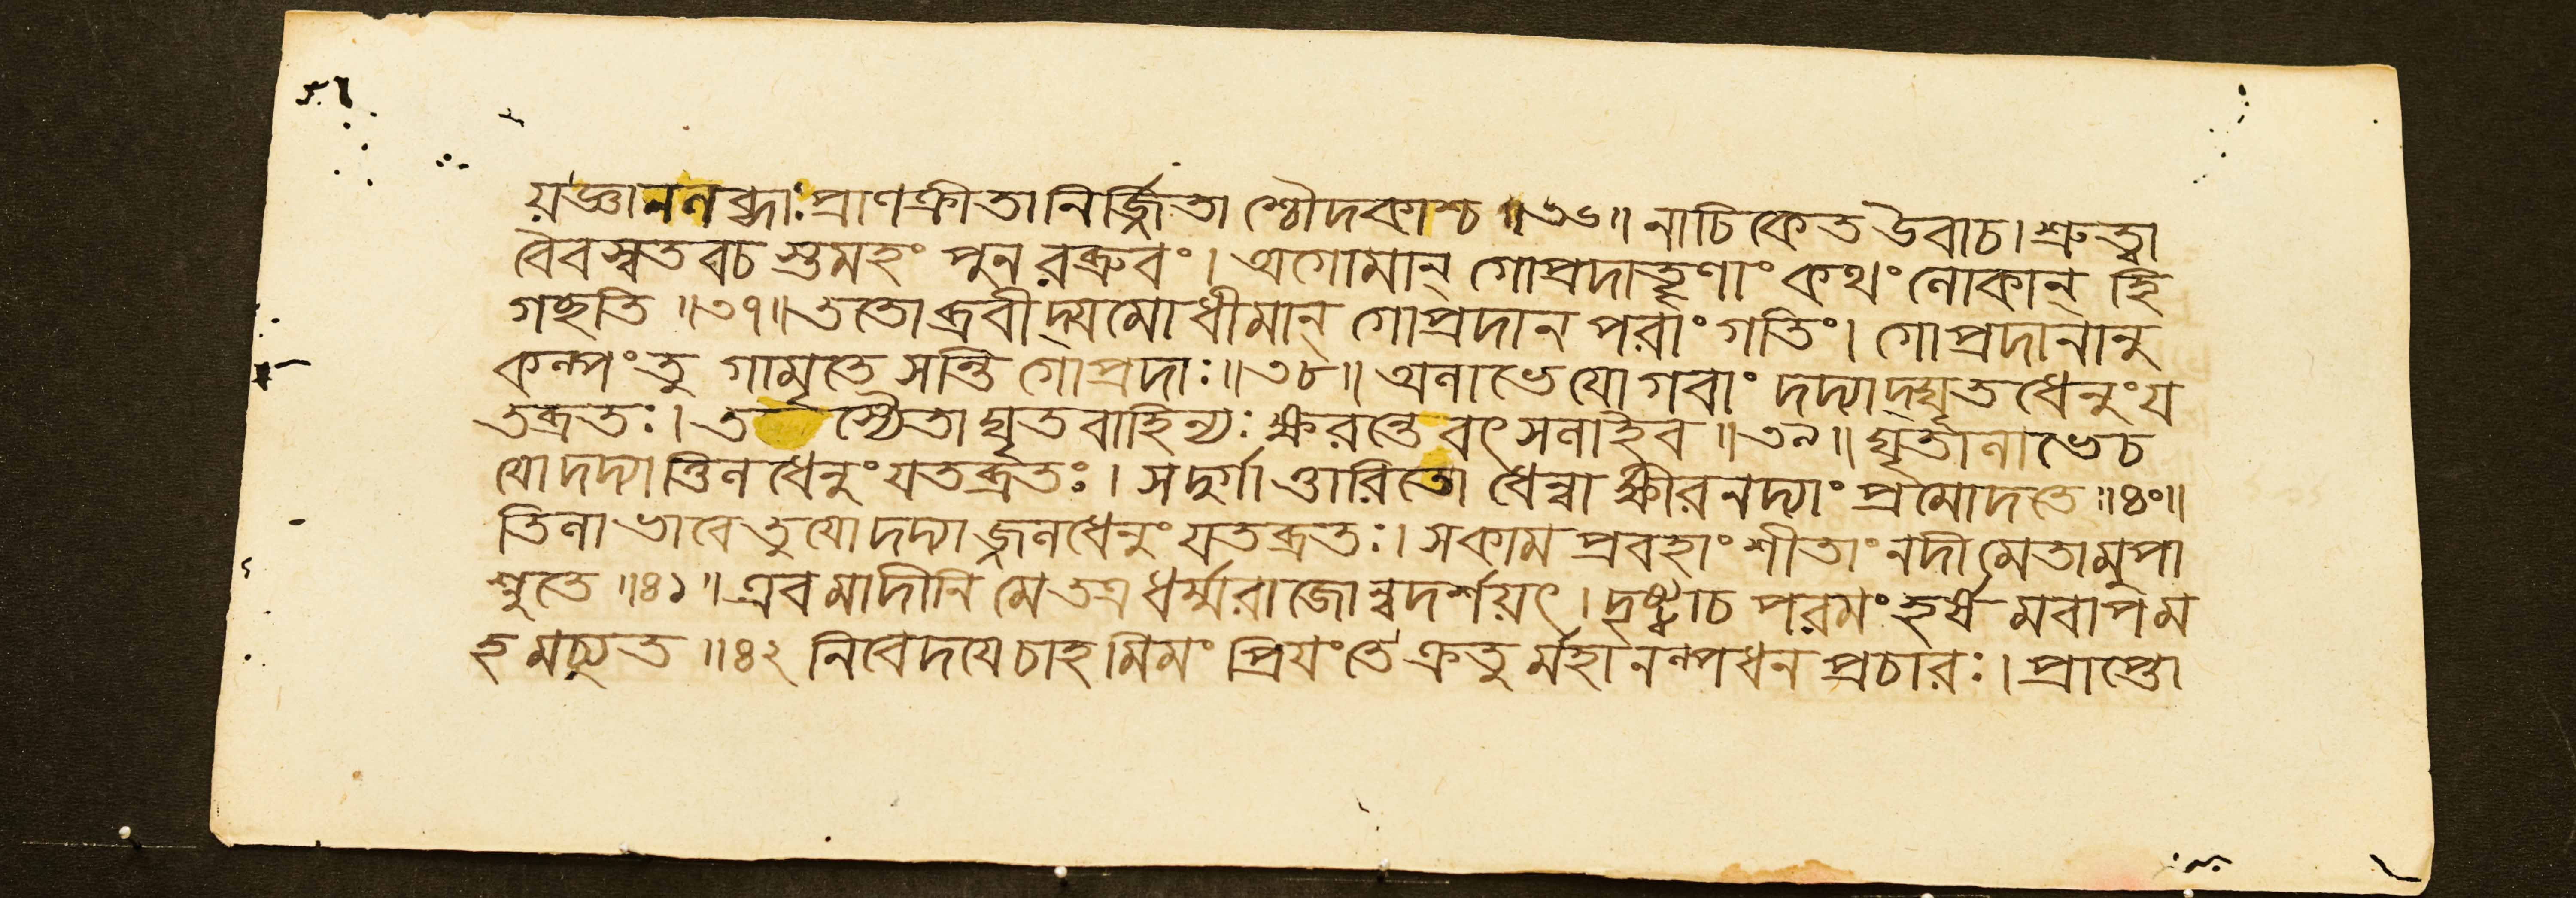 য়জ্ঞানলব্ধাঃপ্রাণক্রীতানির্জ্জিতা শ্চৌদকাশ্চ ॥৩৬॥ নাচিকেত উবাচ। শ্রুত্বা
বৈবস্বতবচ স্তমহং পুনরব্রুবং। অগোমান্ গোপ্রদাতৄণাং কথং লোকান্ হি
গছতি ॥৩৭॥ ততোব্রবীদ্যমোধীমান্ গোপ্রদান পরাং গতিং। গোপ্রদানানু
কল্পং তু গামৃতে সন্তি গোপ্রদাঃ॥৩৮॥ অলাভে যোগবাং দদ্যাদ্ঘৃতধেনুং য
তব্রতঃ। ত স্যৈতাঘৃতবাহিন্যঃ ক্ষরন্তে বৎসলাইব ॥৩৯॥ ঘৃতালাভেচ
যোদদ্যাত্তিলধেনুং যতব্রতঃ। সদুর্গাত্তারিতো ধেন্বা ক্ষীরনদ্যাং প্রমোদতে ॥৪০॥
তিলাভাবেতুযোদদ্যাজ্জলধেনুং যতব্রতঃ। সকামপ্রবহাং শীতাং নদীমেতামুপা
শ্নুতে ॥৪১॥ এবমাদীনি মেতত্র ধর্ম্মরাজোন্বদর্শয়ৎ। দৃষ্ট্বাচ পরমং হর্ষমবাপম
হমচ্যুত ॥৪২ নিবেদযেচাহমিমং প্রিযংতে ক্রতুর্মহানল্পধনপ্রচারঃ। প্রাপ্তো